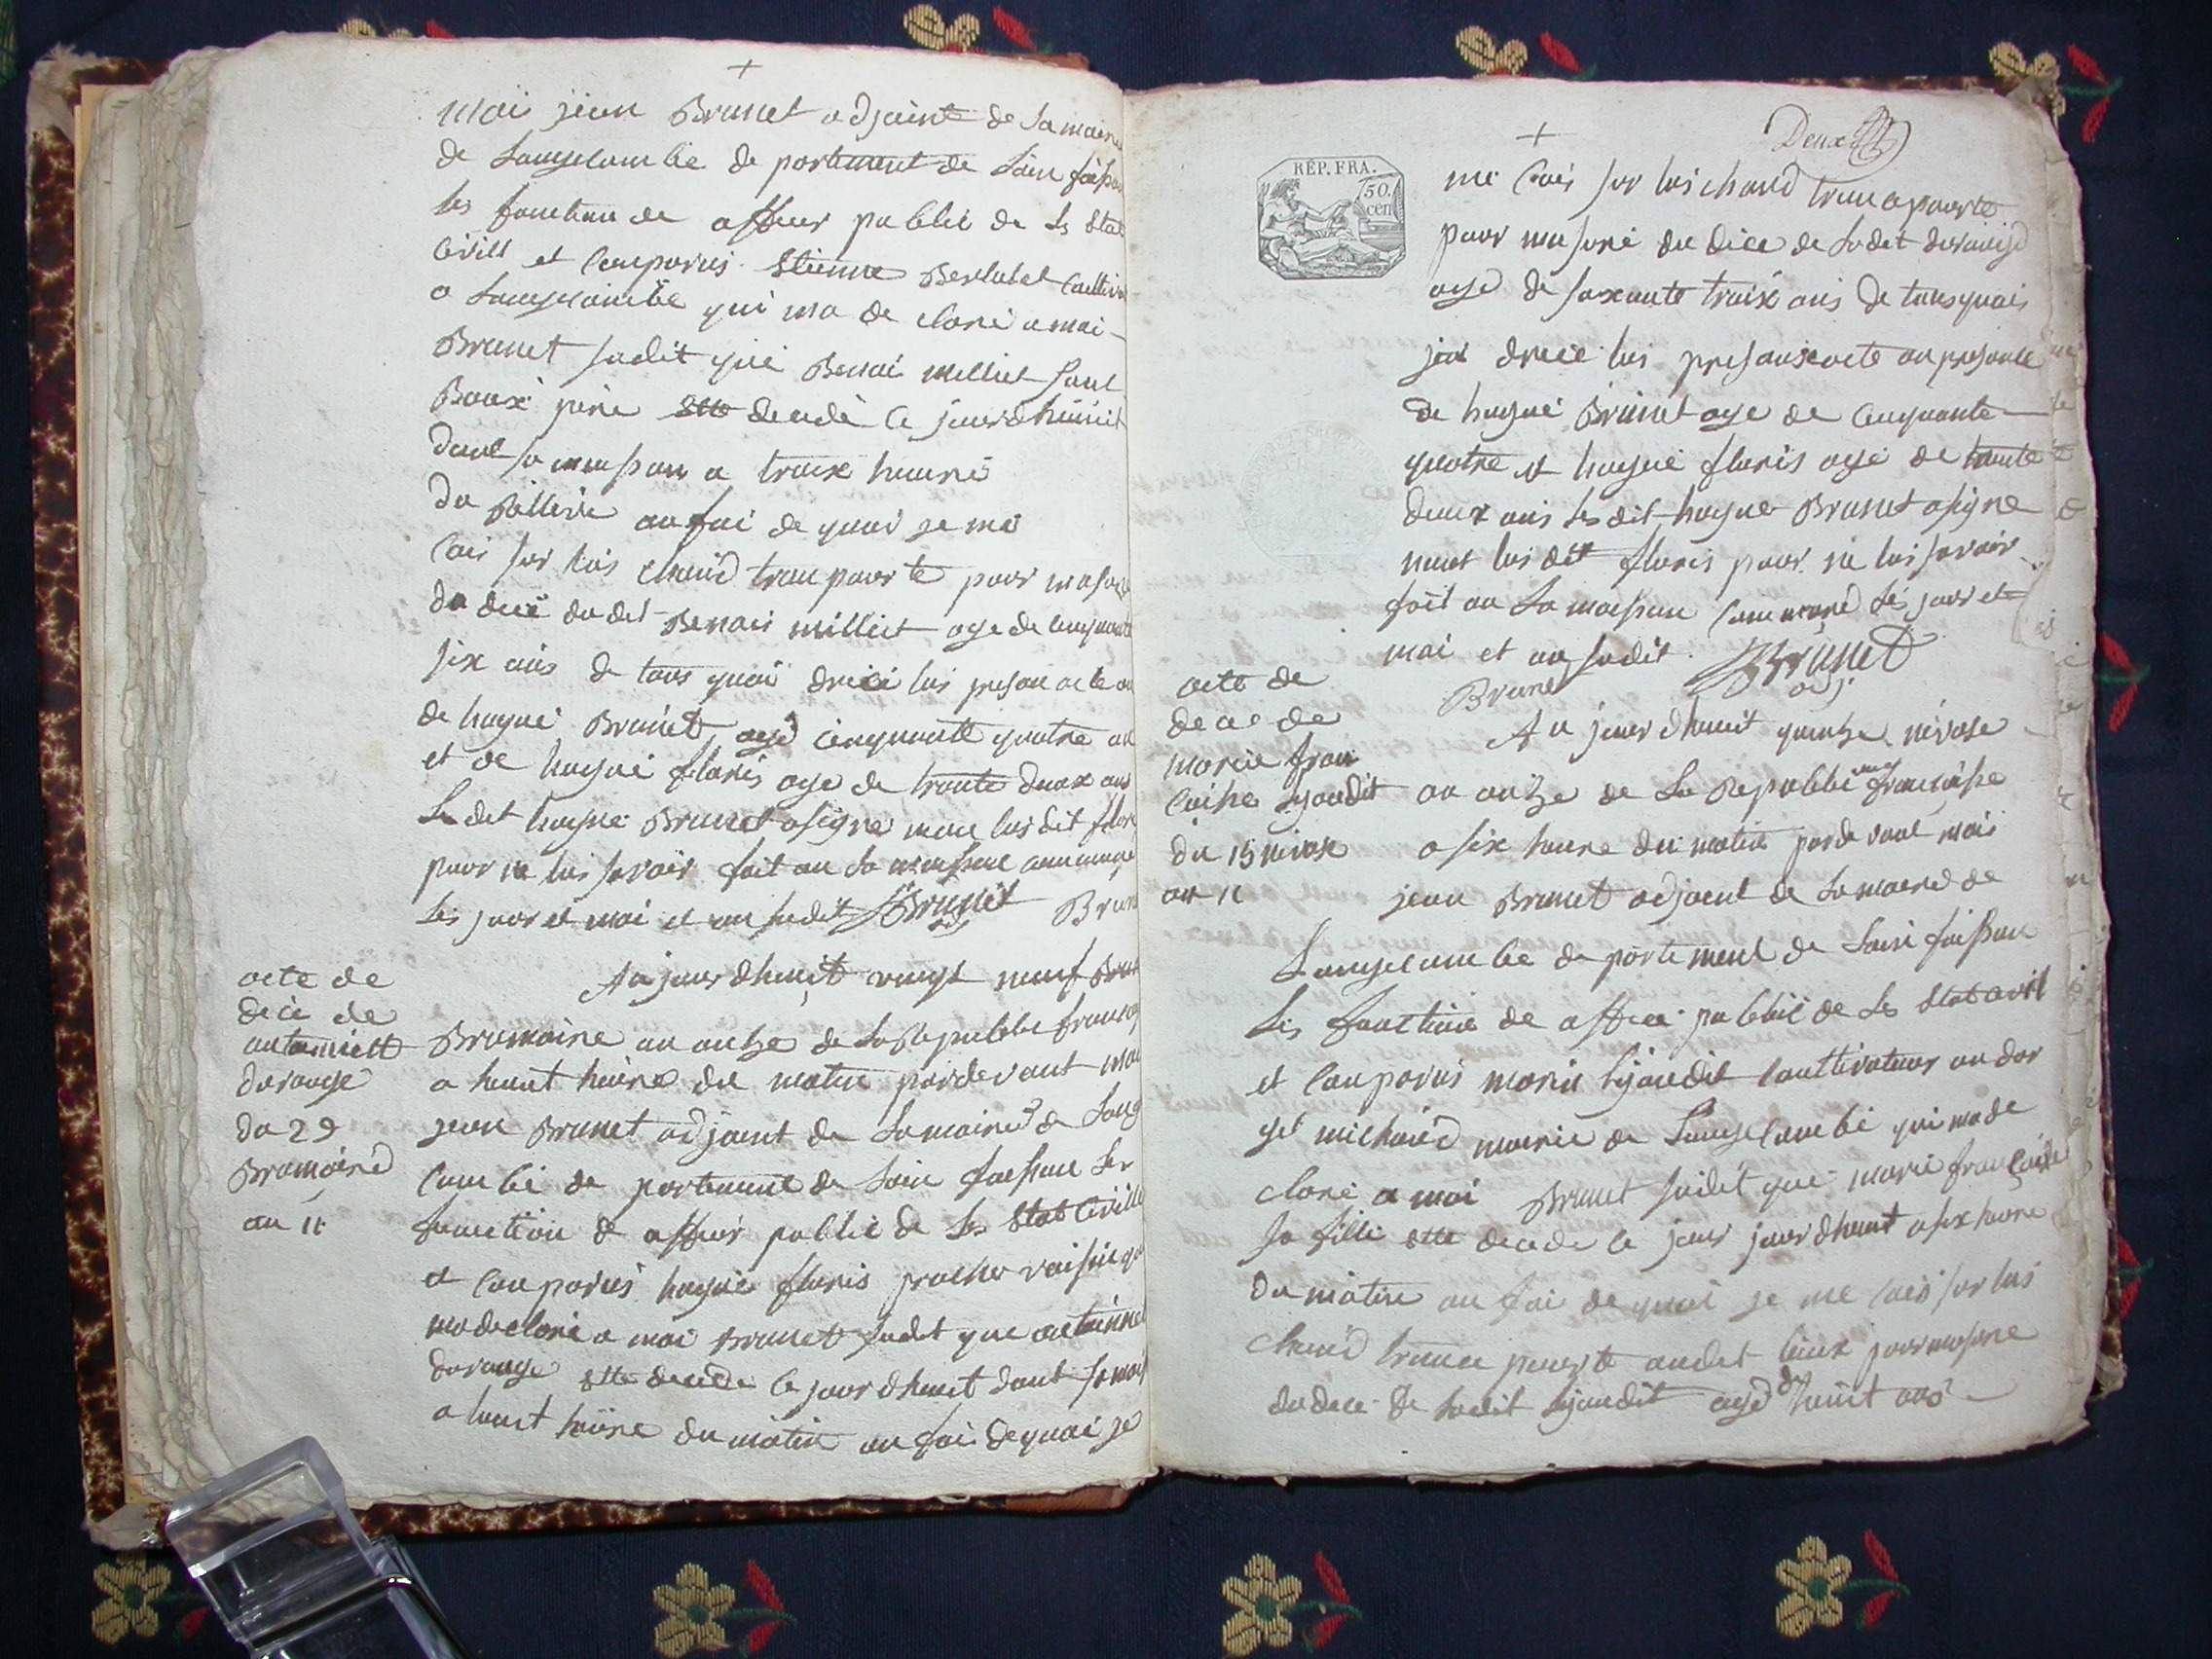 mai jean Brunet adjainte de la maire
de Langelambe de portement de Loire faisan
les fonction de affeer publie de Ls Stat
Civill et Conparus Etienne Berlabet Cultiv
a Langelambe qui ma de clare a mai
Brunet sudit que Benai milliet sont
Baux pere ette decede le jourdhuit
dant sa maison a traix heure
du au foi de quai je me
Cais sur lais chand tranpourte pour masure
du dece dudet Benais milliet age de cinquante
six ans de tous quai dreci lais presan acte au
de hugue Brunet age cinquante quatre an
et de hugue floris age de trante deux ans
Le det hugue Brunet a signe mon lais dit flori
pour ne lais savair fait au la maison commune
Les jour et mai et an sudit Brunet Brun
adj
acte de
dece de
antoniett
durange
du 29
Bramaire
an 11
Au jour dhuit vingt neuf Brun
Brumaire an onze de La Repubbe francay
a huit heure du matin pardevant mai
jean Brunet adjoint de La maire de Lang
Combe de portement de Loire faisant Les
fonction de affeer public de Ls Stat Civille
et Conparus hugue floris procher vaisin q
ma declare a mai Brunet sudit que antoinne
durange ette decede le jourdhuit dant sa mais
a huit heure du matin au foi de quai je
Deux
RÉP. FRA.
50.
cen
me Cais sur lais chand trancpourte
pour masure du dece de Ladet durange
age de saxante traix ans de tous quais
jai dreci lais presanx acte an presance
de hugue Brunet age de cinquante
quatre et hugue floris age de trante
deux ans Les dit hugue Brunet a signe
mont lais dit floris pour ne lais savair
fait au La maison Commune Les jour et
mai et an sudit. Brunet
Brune adj.
acte de
dece de
marie fran
caise Lijaudit
du 15 nivose
an 11
Au jour dhuit quinze nivose
an onze de La Repubbe francaise
a six heure du matin pardevant mai
jean Brunet adjoint de La maire de
Langelambe de portement de Loire faisan
Les fonction de affeer publie de Ls Stat Civil
et Conparus marie Lijaudit Cultivateur au dor
get michaud mairie de Langelambe qui ma de
clare a mai Brunet sudit que marie francaise
sa fille ette decede le jour jour dhuit a six heure
du matin au foi de quai je me Cais sur lais
chand trance pourte audet Lieux pour masure
du dece de Ladit Lijaudit age de huit ans